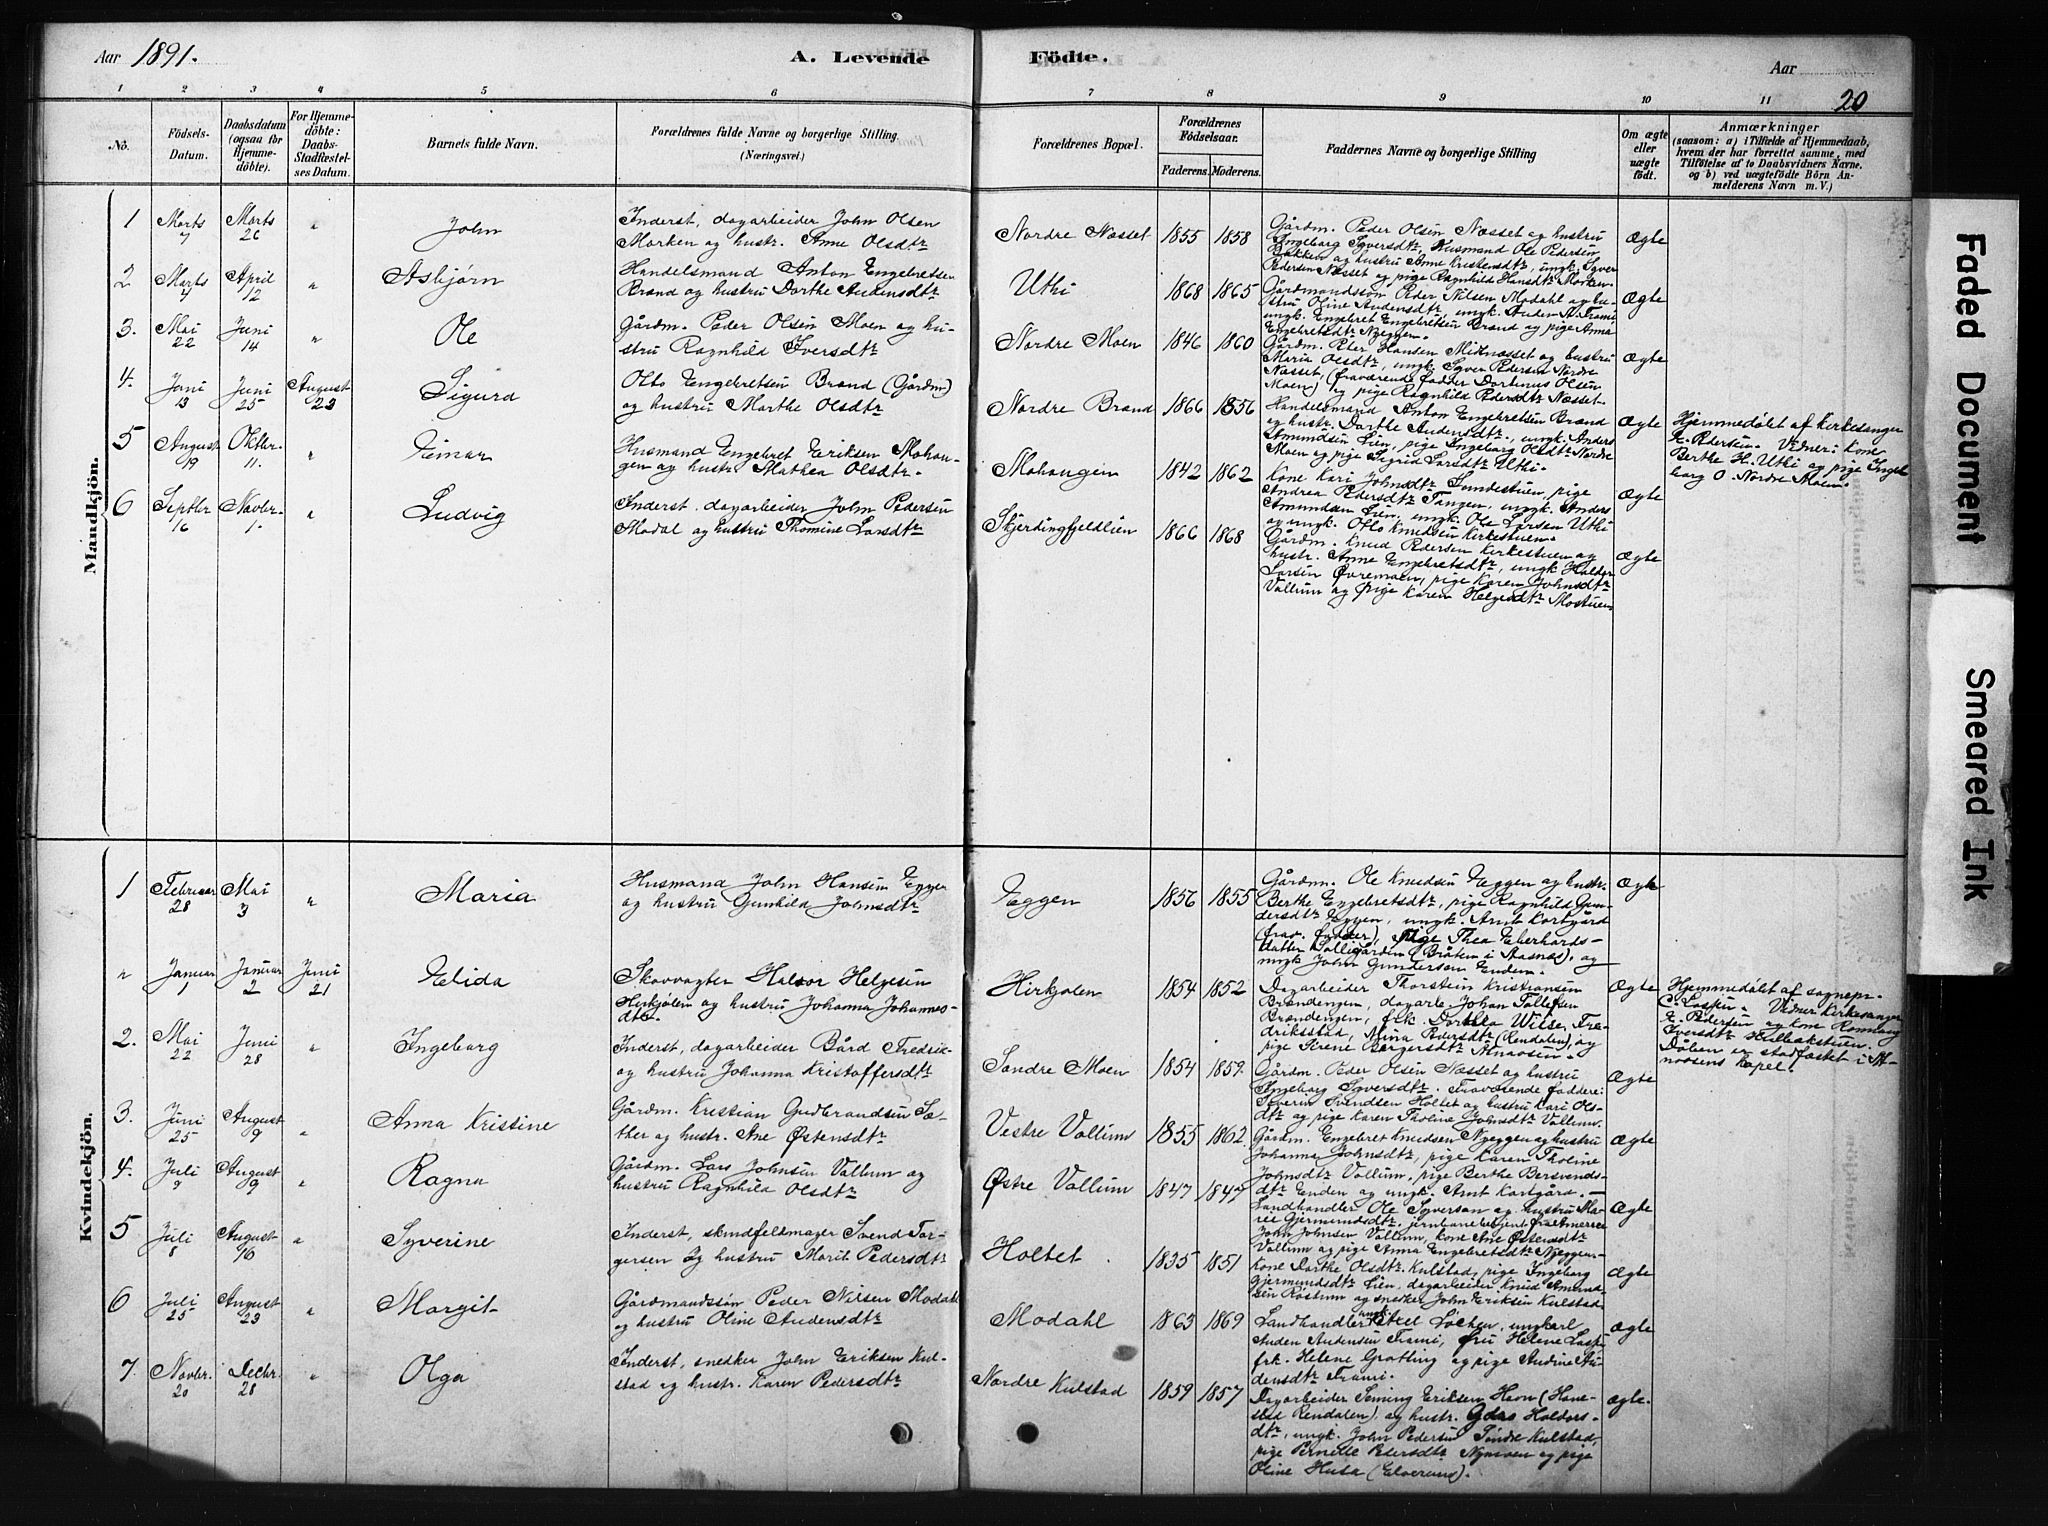 Aar 1891.
A. Levende
Födte.
Aar
20
1 2 3 4 5 6 7 8 9 10 11
No.
Födsels-
Datum.
Daabsdatum
(ogsaa for
Hjemme-
döbte).
For Hjemme-
döbte:
Daabs-
Stadfæstel-
ses Datum.
Barnets fulde Navn.
Forældrenes fulde Navne og borgerlige Stilling.
(Næringsvei.)
Forældrenes Bopæl.
Forældrenes
Födselsaar.
Faderens. Moderens.
Faddernes Navne og borgerlige Stilling
Om ægte
eller
uægte
födt.
Anmærkninger
(saasom: a) i Tilfælde af Hjemmedaab,
hvem der har forrettet samme, med
Tilföielse af to Daabsvidners Navne,
og b) ved uægtefödte Börn An-
melderens Navn m. V.)
Mandkjön.
1 Marts 7 Marts 26 " John
Inderst, dagarbeider John Olsen
Morken og hustr. Anne Olsdtr
Nordre Næsset 1855 1858
Gårdm. Peder Olsen Næsset og hustru
Ingeborg Syversdtr, Husmand Ole Pedersen
Bakken og hustru Anne Kristensdtr, ungk. Syver
Pedersen Næsset og pige Ragnhild Hansdtr Morken.
Ægte
2 Marts 7 April 12 " Asbjørn
Handelsmand Anton Engebretsen
Brænd og hustru Dorthe Audensdtr
Uthi 1868 1865
Gårdmandssøn Peder Nilsen Modahl og hu-
stru Oline Audensdtr, ungk. Auden A. Trøni
ungk. Engebret Engebretsen Brænd og pige Anna
Engebretsdtr Nyeggen.
Ægte
3. Mai 22 Juni 14 " Ole
Gårdm. Peder Olsen Moen og hu-
stru Ragnhild Iversdtr
Nordre Moen 1846 1860
Gårdm. Peter Hansen Midtnæsset og hustru
Maria Olsdtr, ungk. Syver Pedersen Nordre
Næsset, (fraværende fadder Dortinus Olsen
Moen) og pige Ragnhild Pedersdtr Næsset.
Ægte
4. Juni 13 Juni 25 August 23 Sigurd
Otto Engebretsen Brænd (Gårdm)
og hustru Marthe Olsdtr
Nordre Brænd 1866 1856
Handelsmand Anton Engebretsen Brænd
og hustr. Dorthe Audensdtr., ungk. Anders
Amundsen Lien, pige Ingeborg Olsdtr Nordre
Moen og pige Sigrid Larsdtr Uthi.
Ægte
Hjemmedøbt af kirkesanger
E. Pedersen. Vidner: kone
Berthe H. Uthi og pige Inge-
borg O. Nordre Moen.
5 August 19 Oktbr. 11. " Einar
Husmand Engebret Eriksen Mohau-
gen og hustr. Mathea Olsdtr.
Mohaugen 1842 1862
Kone Kari Johnsdtr Sundestuen, pige
Andrea Pedersdtr Tangen, ungk. Anders
Amundsen Lien, ungk. Ole Larsen Uthi
og ungk. Otto Knudsen Kirkestuen.
Ægte
6 Septbr 16 Novbr. 1. " Ludvig
Inderst. dagarbeider John Pedersen
Modal og hustru Thomine Larsdtr
Skjerdingfjeldlien 1866 1868
Gårdm. Knud Pedersen Kirkestuen og
hustr. Anne Engebretsdtr, ungk. Haldor
Larsen Øvremoen, pige Karen Johnsdtr
Vollum og pige Karen Helgesdtr Mostuen
Ægte
Kvindekjön.
1 Februar 28 Mai 3 " Maria
Husmand John Hansen Eggen
og hustru Gunhild Johnsdtr
Eggen 1856 1855
Gårdm. Ole Knudsen Eggen og hustr.
Berthe Engebretsdtr, pige Ragnhild Gun-
dersdtr Eggen, ungk. Arnt Kortgård
(frav. fadder), pige Thea Eberhards-
datter (Bråten i Aasnæs), og
ungk John Gundersen Enden.
Ægte
" Januar 1 Januar 2 Juni 21 Elida
Skovvogter Halvor Helgesen
Hirkjølen og hustru Johanna Johannes-
dtr
Hirkjølen 1854 1852
Dagarbeider Thorstein Kristiansen
Brændengen, dagarb. Johan Tollefsen
Brændengen, frk. Dorthea Wilse, Fre-
driksstad, Mina Pedersdtr (Rendalen), og
pige Sirene Børgersdtr Atnaosen.
Ægte
Hjemmedøbt af sognepr.
C. Lassen. Vidner: Kirkesanger
E. Pedersen og kone Rønnaug
Iversdtr Kulbakstuen.
Dåben er stadfæstet i At-
naosens kapel.
2. Mai 22 Juni 28 " Ingeborg
Inderst, dagarbeider Bård Fredrik-
og hustru Johanna Kristoffersdtr
Søndre Moen 1854 1859.
Gårdm. Peder Olsen Næsset og hustru
Ingeborg Syversdtr. Fraværende faddere:
Severin Svendsen Holtet og hustru Kari Ols-
dtr og pige Karen Tholine Johnsdtr Vollum.
Ægte
3. Juni 25 August 9 " Anna Kristine
Gårdm. Kristian Gudbrandsen Sæ-
ther og hustr. Ane Østensdtr
Vestre Vollum 1855 1862.
Gårdm. Engebret Knudsen Nyeggen og hustru
Johanna Johnsdtr, pige Karen Tholine
Johnsdtr Vollum, pige Berthe Bersvends-
dtr Enden og ungk. Arnt Kortgård.
Ægte
4. Juli 9 August 9 " Ragna
Gårdm. Lars Johnsen Vollum og
hustru Ragnhild Olsdtr
Østre Vollum 1847 1847
Landhandler Ole Syverson og hustru Ma-
rie Gjermundsdtr, jernbanebetjent fra Amerika
John Johnsen Vollum, kone Ane Østensdtr
Vollum og pige Anna Engebretsdtr Nyeggen.
Ægte
5 Juli 8 August 16 " Syverine
Inderst, skindfeldmager Svend Tor-
gersen og hustru Marit Pedersdtr
Holtet. 1835 1851
Kone Dorthe Olsdtr. Kulstad, pige Ingeborg
Gjermundsdtr Lien, dagarbeider Knud Amund-
sen Rostum og snedker John Eriksen Kulstad.
Ægte
6 Juli 25 August 23 " Margit
Gårdmandssøn Peder Nilsen Modahl
og hustru Oline Audensdtr
Modahl 1863 1869
Landhandler Løchen, ungkarl
Auden Audensen Trøni, fru Helene Lassen,
frk. Helene Grøtting og pige Audine Au-
densdtr Trøni.
Ægte
7. Novbr. 20 Decbr. 28 " Olga
Inderst, snedker John Eriksen Kul-
stad og hustr. Karen Pedersdtr
Nordre Kulstad 1859 1857
Dagarbeider Seming Eriksen Horn (Hane-
stad Rendalen) og hustr. Haldors-
dtr, ungk. John Pedersen Søndre Kulstad,
pige Pernille Pedersdtr Nymoen og pige
Oline Husa (Elverum).
Ægte.
Faded Document
Smeared Ink